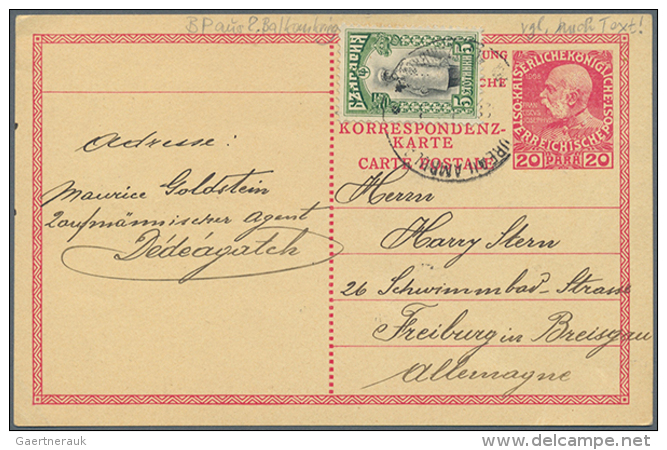 BP aus 2. Balkankrieg
vgl. auch Text!
БЪЛГАРИЯ
5 СТОТИНКИ 5
KAISERLICHE KÖNIGLICHE
ÖSTERREICHISCHE POST
20 PARA 20
KORRESPONDENZ-
KARTE
CARTE POSTALE
Adresse:
Maurice Goldstein
Kaufmännischer Agent
Dédéagatch
Herrn
Harry Stern
26 Schwimmbad-Strasse
Freiburg in Breisgau
Allemagne
Gaertnerauk
delcampe.net